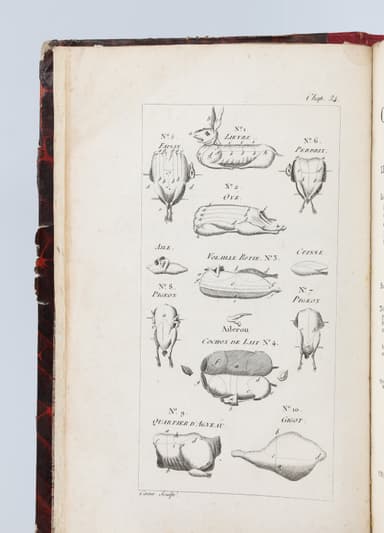 Chap. 34.
N.º 1.
LIEVRE.
N.º 5.
FAISAN
N.º 6.
PERDRIX.
N.º 2.
OYE.
AILE.
VOLAILLE ROTIE. N.º 3.
CUISSE
N.º 8.
PIGEON
N.º 7.
PIGEON
Aileron
COCHON DE LAIT N.º 4.
N.º 9.
QUARTIER D'AGNEAU
N.º 10.
GIGOT.
Sculp.